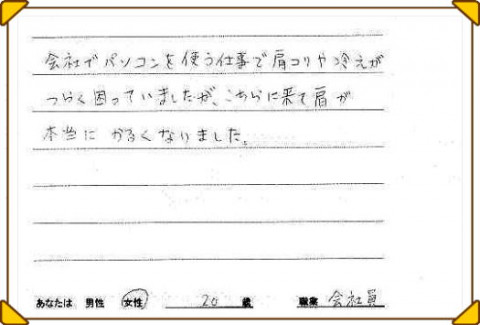 会社でパソコンを使う仕事で肩コリや冷えが
つらく困っていましたが、こちらに来て肩が
本当に かるくなりました。
あなたは 男性 女性 20 歳 職業 会社員